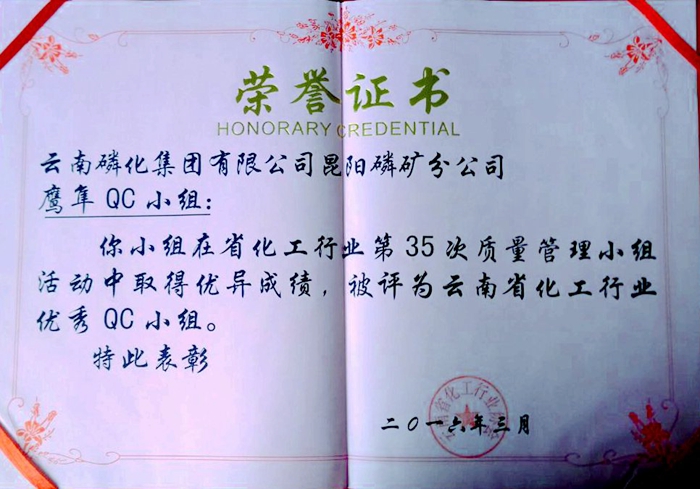 荣誉证书
HONORARY CREDENTIAL
云南磷化集团有限公司昆阳磷矿分公司
鹰隼 QC 小组：
你小组在省化工行业第 35 次质量管理小组
活动中取得优异成绩，被评为云南省化工行业
优秀 QC 小组。
特此表彰
云南省化工行业协会
二〇一六年三月